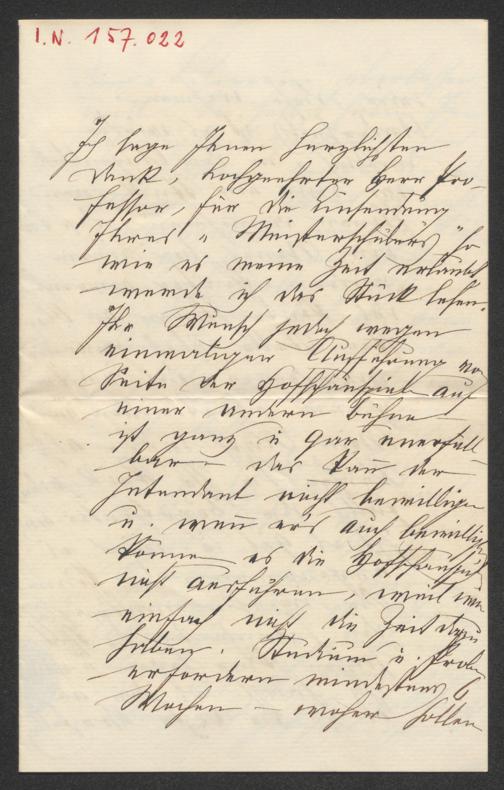 I.N. 157.022
Ich sage Ihnen herzlichsten
Dank, hochgeehrter Herr Pro-
fessor, für die Einsendung
Ihres „Meisterschülers" so
wie es meine Zeit erlaubt
werde ich das Stück lesen.
Ihr Wunsch jedoch wegen
einmaliger Aufführung von
Seite der Hofschauspieler auf
einer andern Bühne
ist ganz u gar unerfüll-
bar – das kann der
Intendant nicht bewilligen
u. wenn er's auch bewilligt
können es die Hofschausp
nicht ausführen, weil wir
einfach nicht die Zeit dazu
haben. Studium u. Proben
erfordern mindestens 6
Wochen – woher sollen